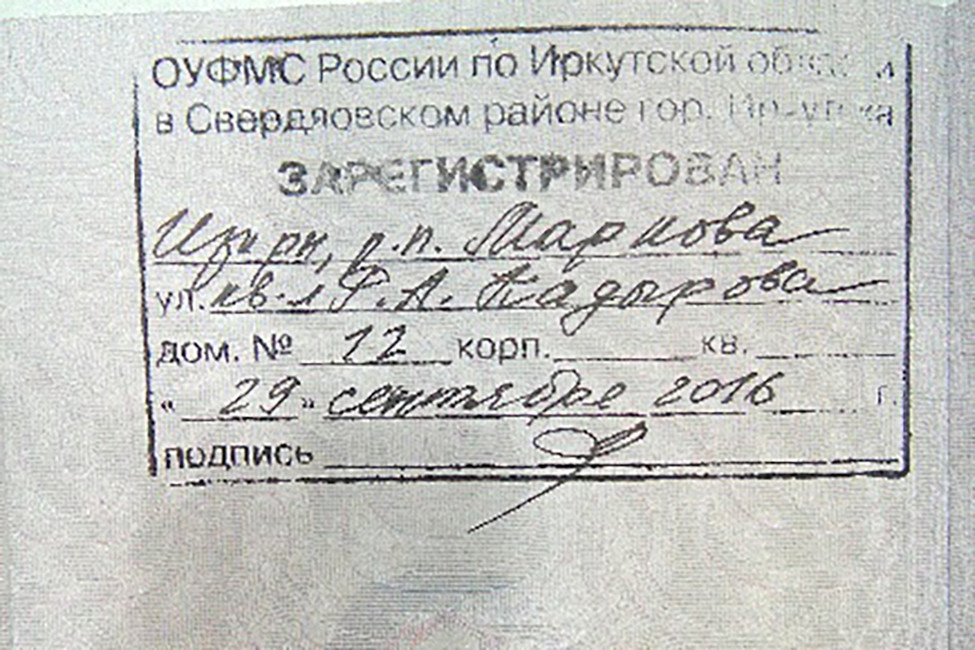 ОУФМС России по Иркутской области
в Свердловском районе гор. Иркутска
ЗАРЕГИСТРИРОВАН
р.п. Маркова
ул. кв-л Ф.А. Кадырова
дом. № 12 корп. кв.
« 29 » сентября 2016 г.
подпись